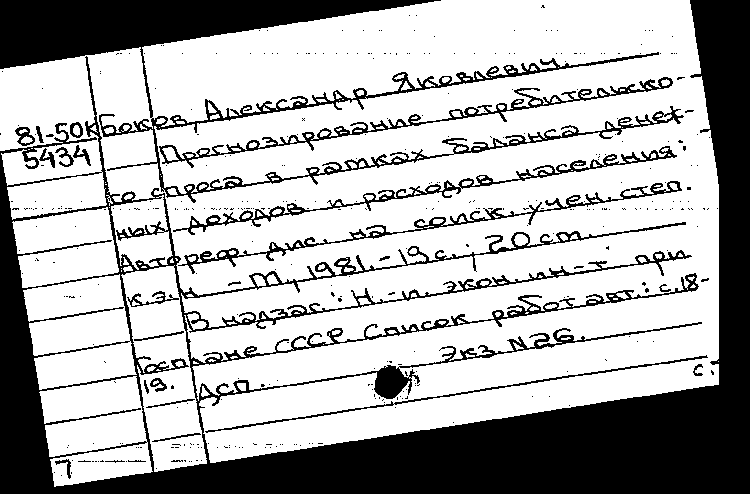 81-50к Боков, Александр Яковлевич.
5434 Прогнозирование потребительско-
го спроса в рамках баланса денеж-
ных доходов и расходов населения:
Автореф. дис. на соиск. учен. степ.
к.э.н. - М, 1981. - 19 с.; 20 cm.
В надзаг.: Н.-и. экон. ин-т при
Госплане СССР. Список работ авт.: с. 18-
19.
ДСП. Экз. N26.
с.
7